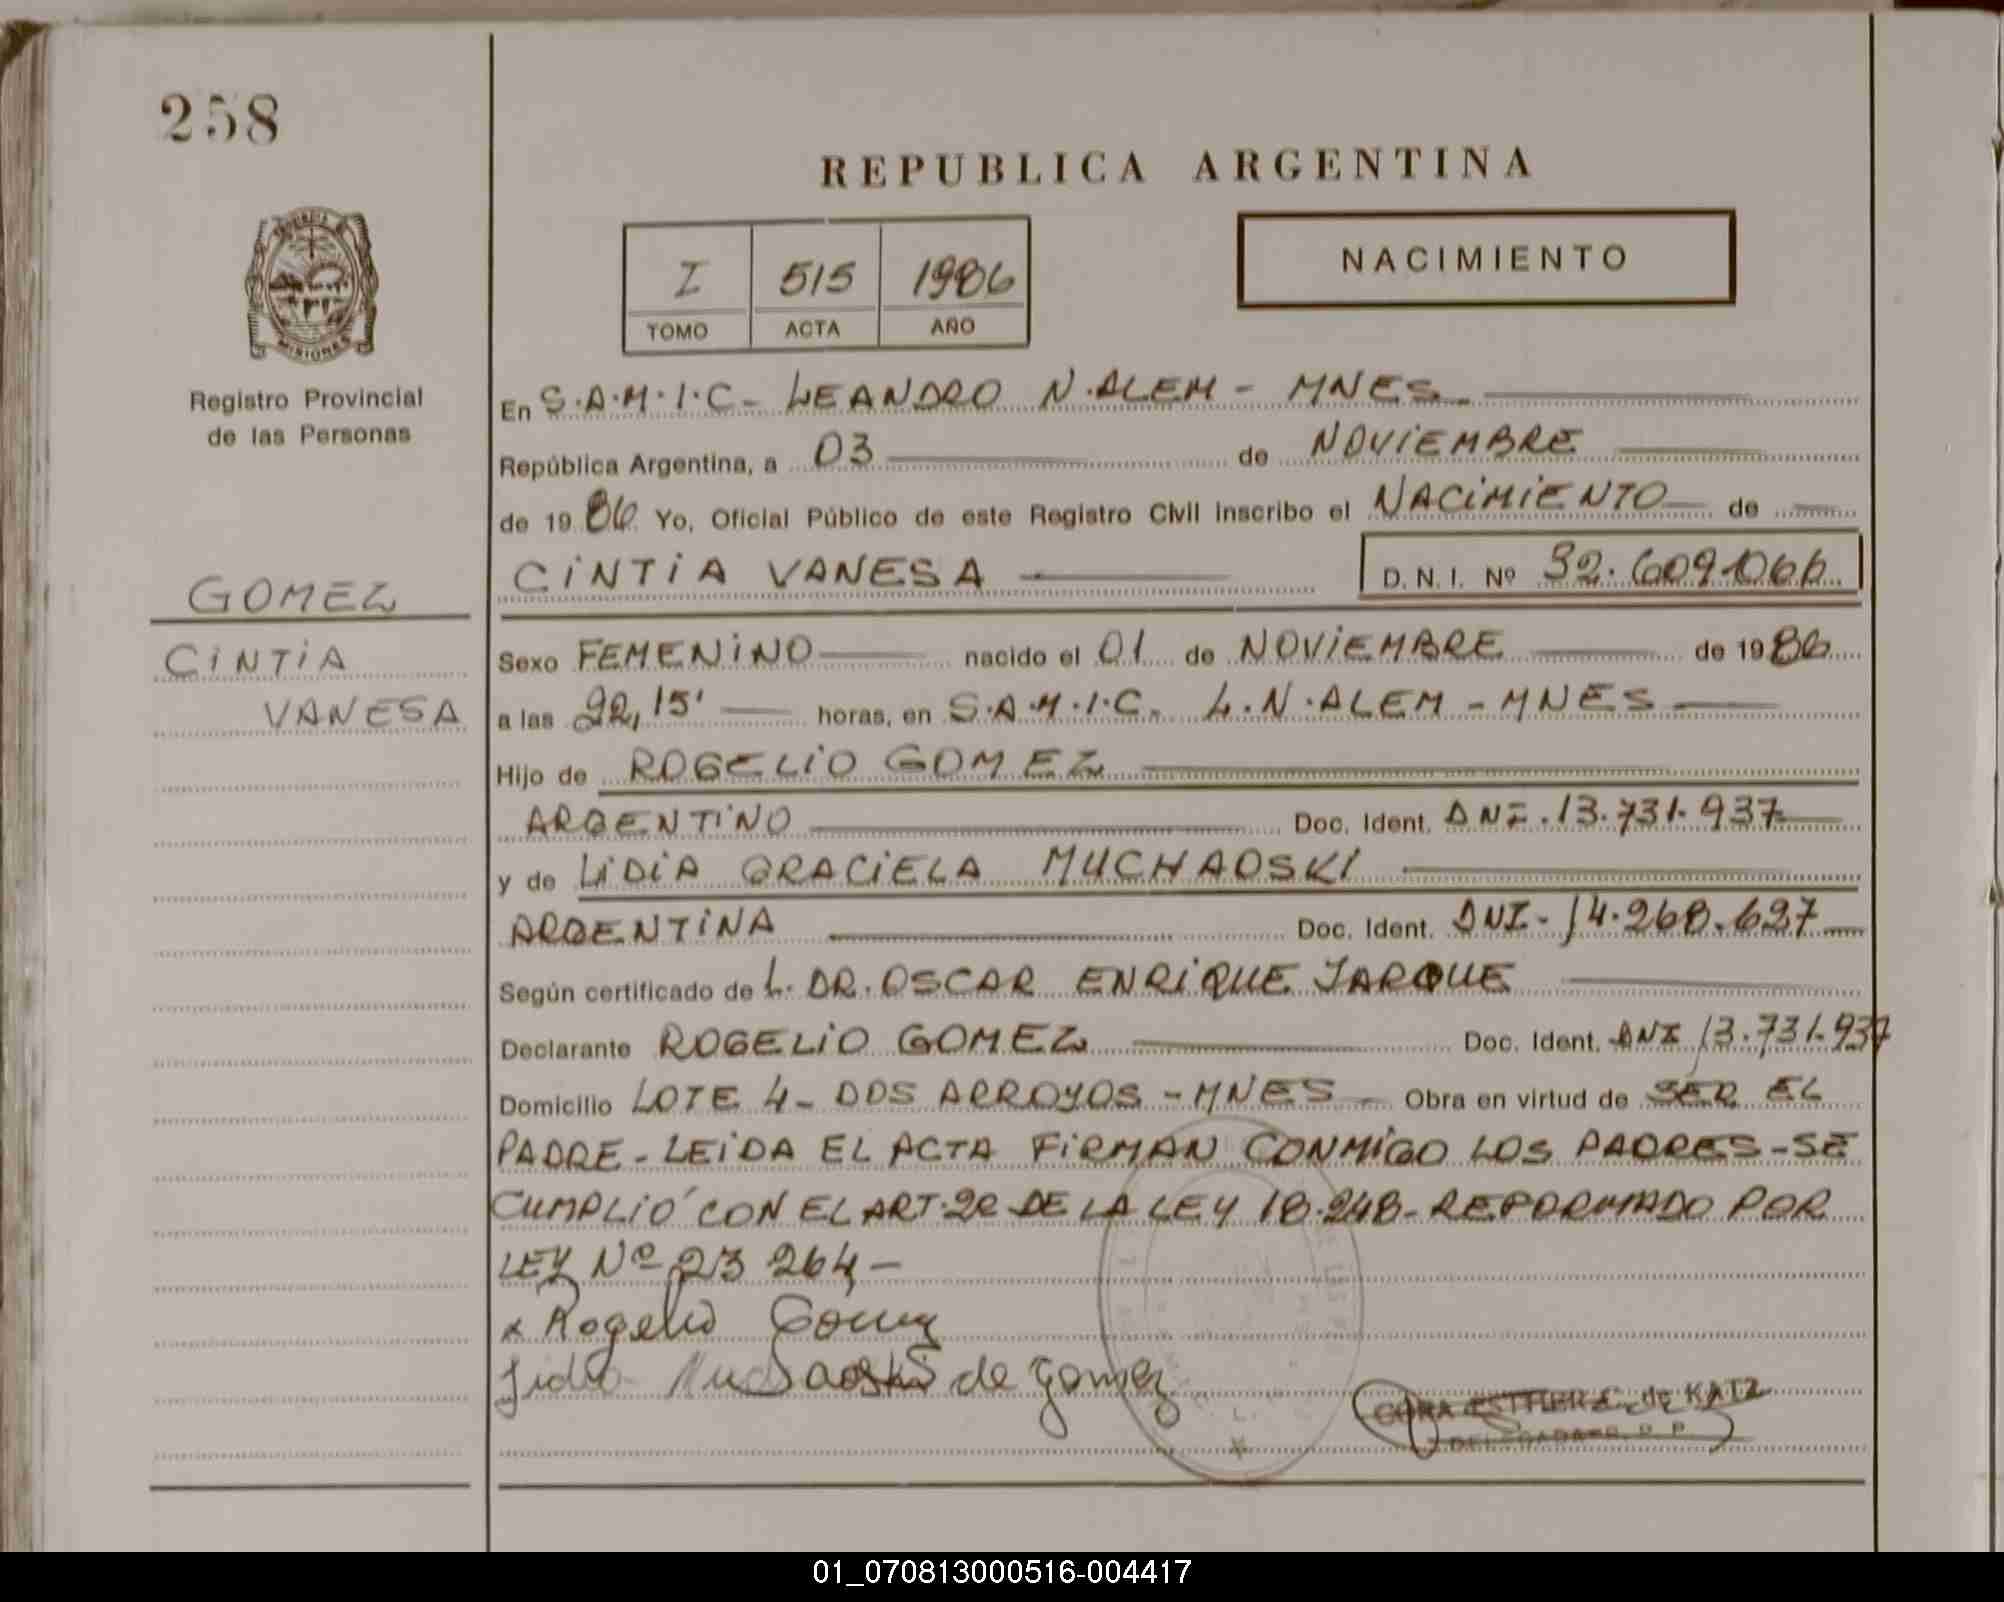 258
REPUBLICA ARGENTINA
NACIMIENTO
I 515 1986
TOMO ACTA AÑO
MISIONES
Registro Provincial
de las Personas
En S.A.M.I.C- LEANDRO N.ALEM - MNES
República Argentina, a 03 de NOVIEMBRE
de 19 86 Yo, Oficial Público de este Registro Civil inscribo el NACIMIENTO de
CINTIA VANESA D. N. I. Nº 32.609.066
GOMEZ
CINTIA
VANESA
Sexo FEMENINO nacido el 01 de NOVIEMBRE de 19 86
a las 22,15' horas, en S.A.M.I.C. L.N.ALEM - MNES
Hijo de ROGELIO GOMEZ
ARGENTINO Doc. Ident. DNI.13.731.937
y de LIDIA GRACIELA MUCHAOSKI
ARGENTINA Doc. Ident. DNI- 14.268.627
Según certificado de L. DR. OSCAR ENRIQUE JARQUE
Declarante ROGELIO GOMEZ Doc. Ident. DNI 13.731.937
Domicilio LOTE 4- DOS ARROYOS - MNES Obra en virtud de SER EL
PADRE - LEIDA EL ACTA FIRMAN CONMIGO LOS PADRES - SE
CUMPLIÓ CON EL ART.2º DE LA LEY 18.248- REFORMADO POR
LEY Nº 23 264 -
x Rogelio Gomez
Lidia Muchaoski de Gomez
ESTHER C. de KATZ
01_070813000516-004417